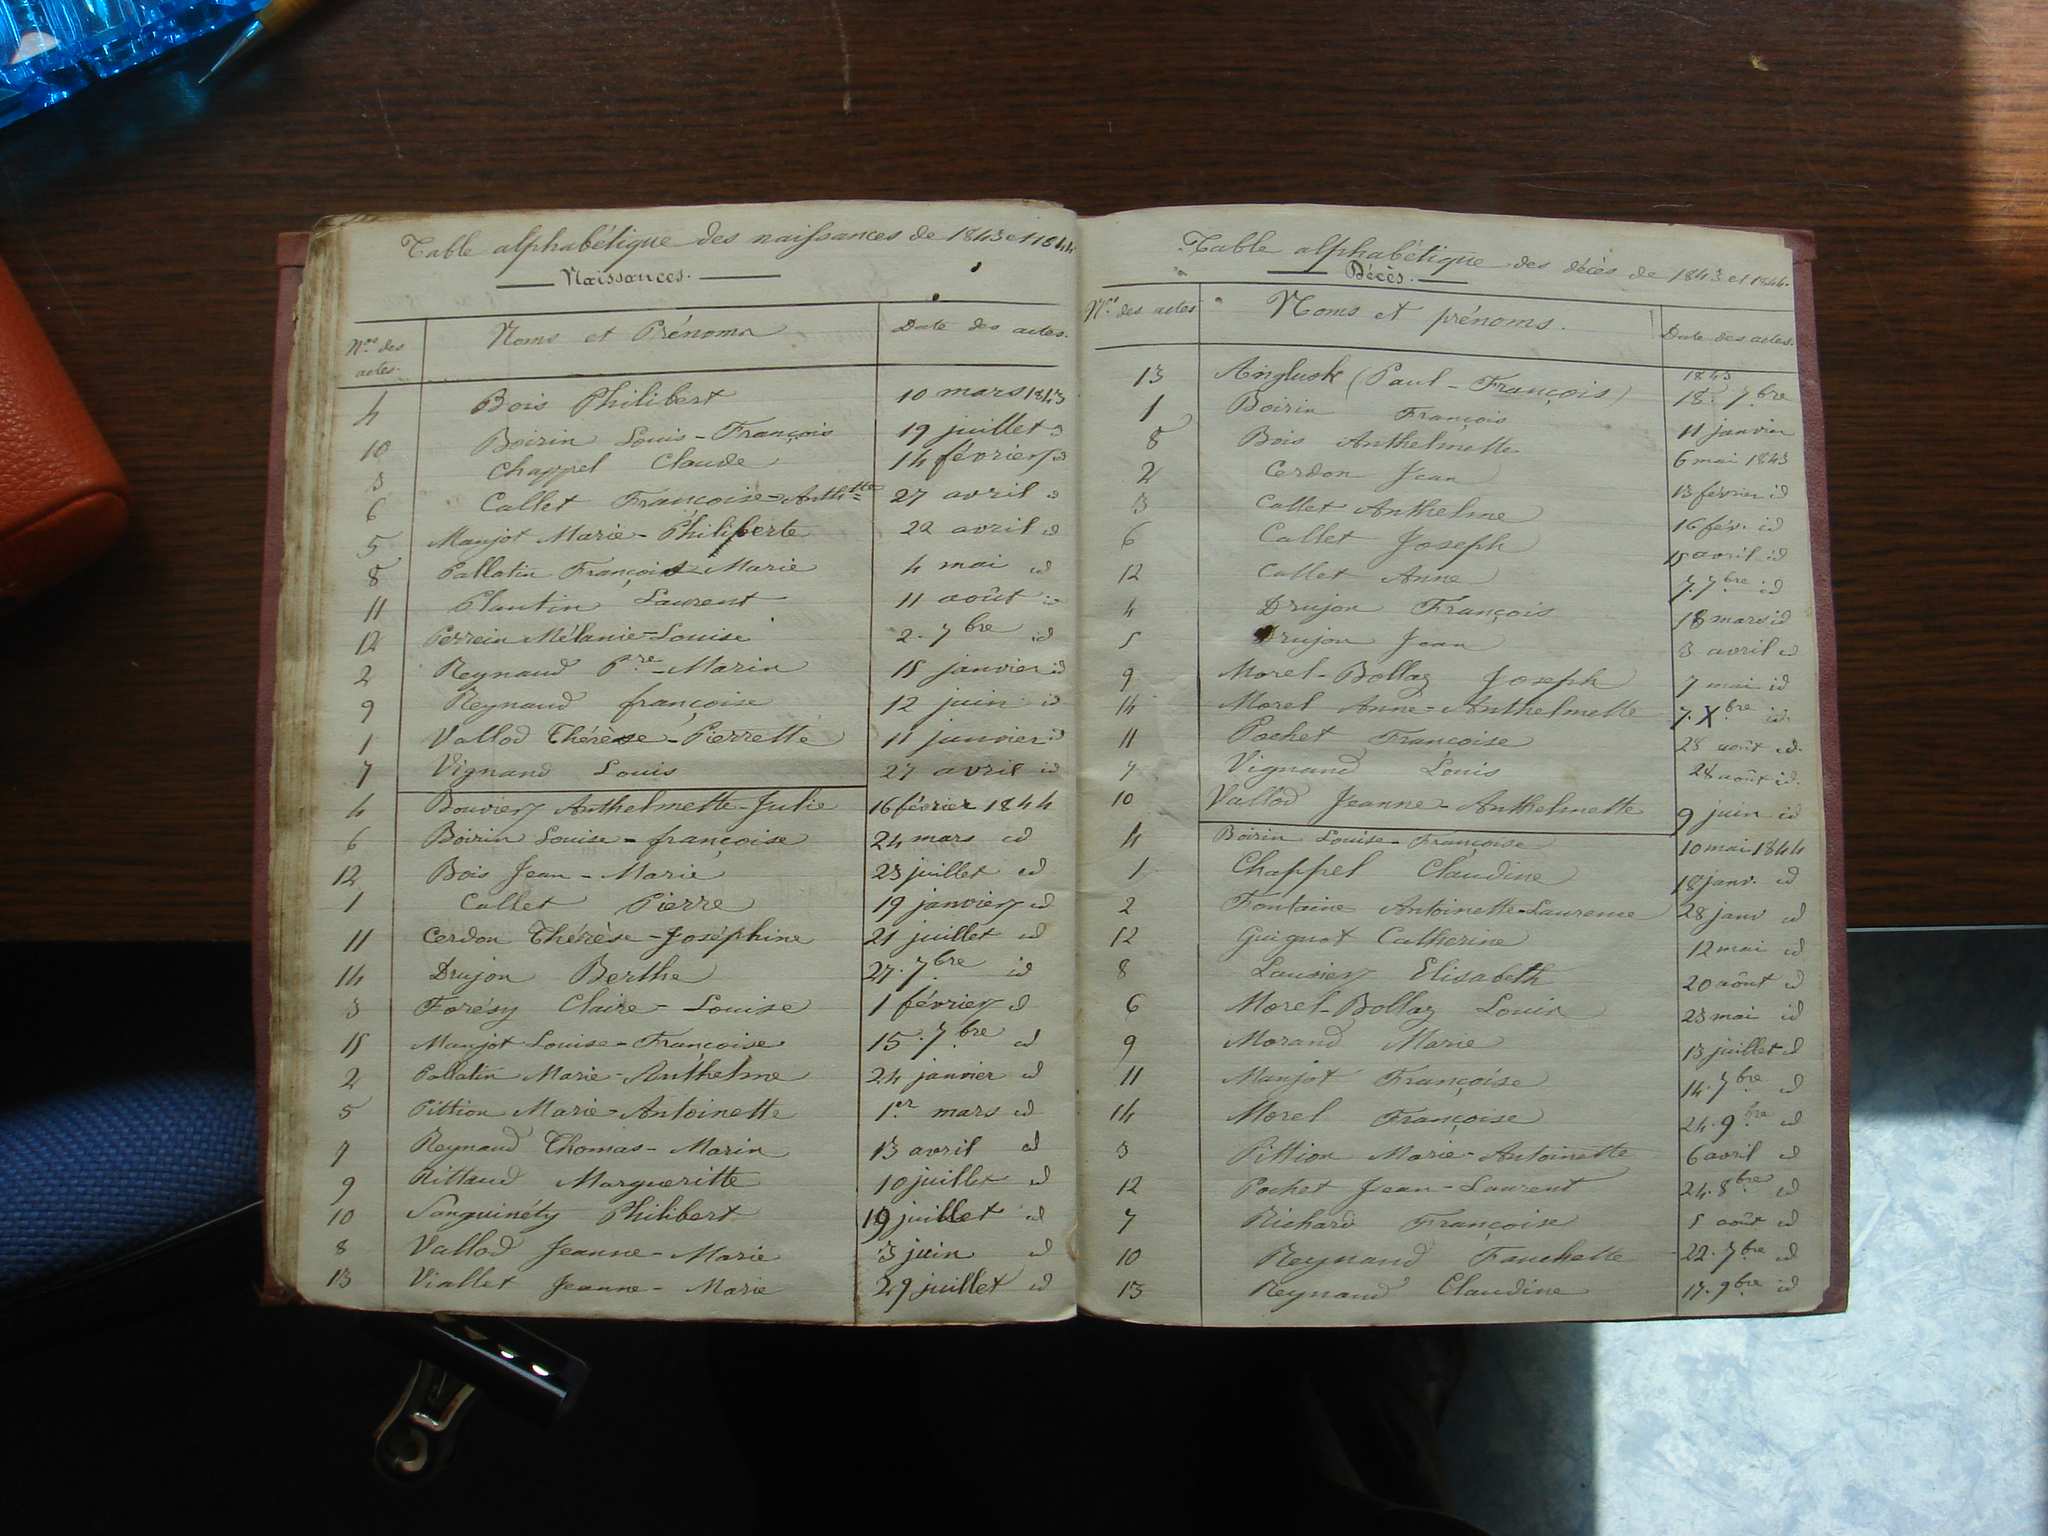 Table alphabétique des naissances de 1843 et 1844
Naissances.
Nos des actes. Noms et Prénoms Date des actes.
4 Bois Philibert 10 mars 1843
10 Boirin Louis-François 19 juillet id
3 Chappel Claude 14 février id
6 Callet Françoise-Anthtte 27 avril id
5 Manjot Marie-Philiberte 22 avril id
8 Pallatin François-Marie 4 mai id
11 Plantin Laurent 11 août id
12 Perrein Mélanie-Louise 2. 7bre id
2 Reynaud Pre-Marin 15 janvier id
9 Reynaud françoise 12 juin id
1 Vallod Thérèse-Pierrette 11 janvier id
7 Vignand Louis 27 avril id
4 Bouvier Anthelmette-Julie 16 février 1844
6 Boirin Louise-françoise 24 mars id
12 Bois Jean-Marie 23 juillet id
1 Callet Pierre 19 janvier id
11 Cerdon Thérèse-Joséphine 21 juillet id
14 Drujon Berthe 27. 7bre id
3 Forésy Claire-Louise 1 février id
15 Manjot Louise-Françoise 15. 7bre id
2 Pallatin Marie-Anthelme 24 janvier id
5 Pittion Marie-Antoinette 1er mars id
7 Reynaud Thomas-Marin 13 avril id
9 Rittaud Margueritte 10 juillet id
10 Sanguinéty Philibert 19 juillet id
8 Vallod Jeanne-Marie 3 juin id
13 Viallet Jeanne-Marie 29 juillet id
Table alphabétique des décès de 1843 et 1844.
Décès.
Nos des actes Noms et prénoms. Date des actes.
1843
13 Angluok (Paul-François) 18. 7bre
1 Boirin François 11 janvier
8 Bois Anthelmette 6 mai 1843
2 Cerdon Jean 13 février id
3 Callet Anthelme 16 fév. id
6 Callet Joseph 15 avril id
12 Callet Anne 7. 7bre id
4 Drujon François 18 mars id
5 Drujon Jean 3 avril id
9 Morel-Bollaz Joseph 7 mai id
14 Morel Anne-Anthelmette 7. Xbre id.
11 Pochet Françoise 28 août id.
7 Vignand Louis 28 août id.
10 Vallod Jeanne-Anthelmette 9 juin id
4 Boirin Louise-Françoise 10 mai 1844
1 Chappel Claudine 18 janv. id
2 Fontaine Antoinette-Laurence 28 janv id
12 Guignot Catherine 12 mai id
8 Elisabeth 20 août id
6 Morel-Bollaz Louis 23 mai id
9 Morand Marie 13 juillet id
11 Manjot Françoise 14. 7bre id
14 Morel Françoise 24. 9bre id
3 Pittion Marie-Antoinette 6 avril id
12 Pochet Jean-Laurent 24. 8bre id
7 Richard Françoise 5 août id
10 Reynaud Fanchette 22. 7bre id
13 Reynaud Claudine 17. 9bre id